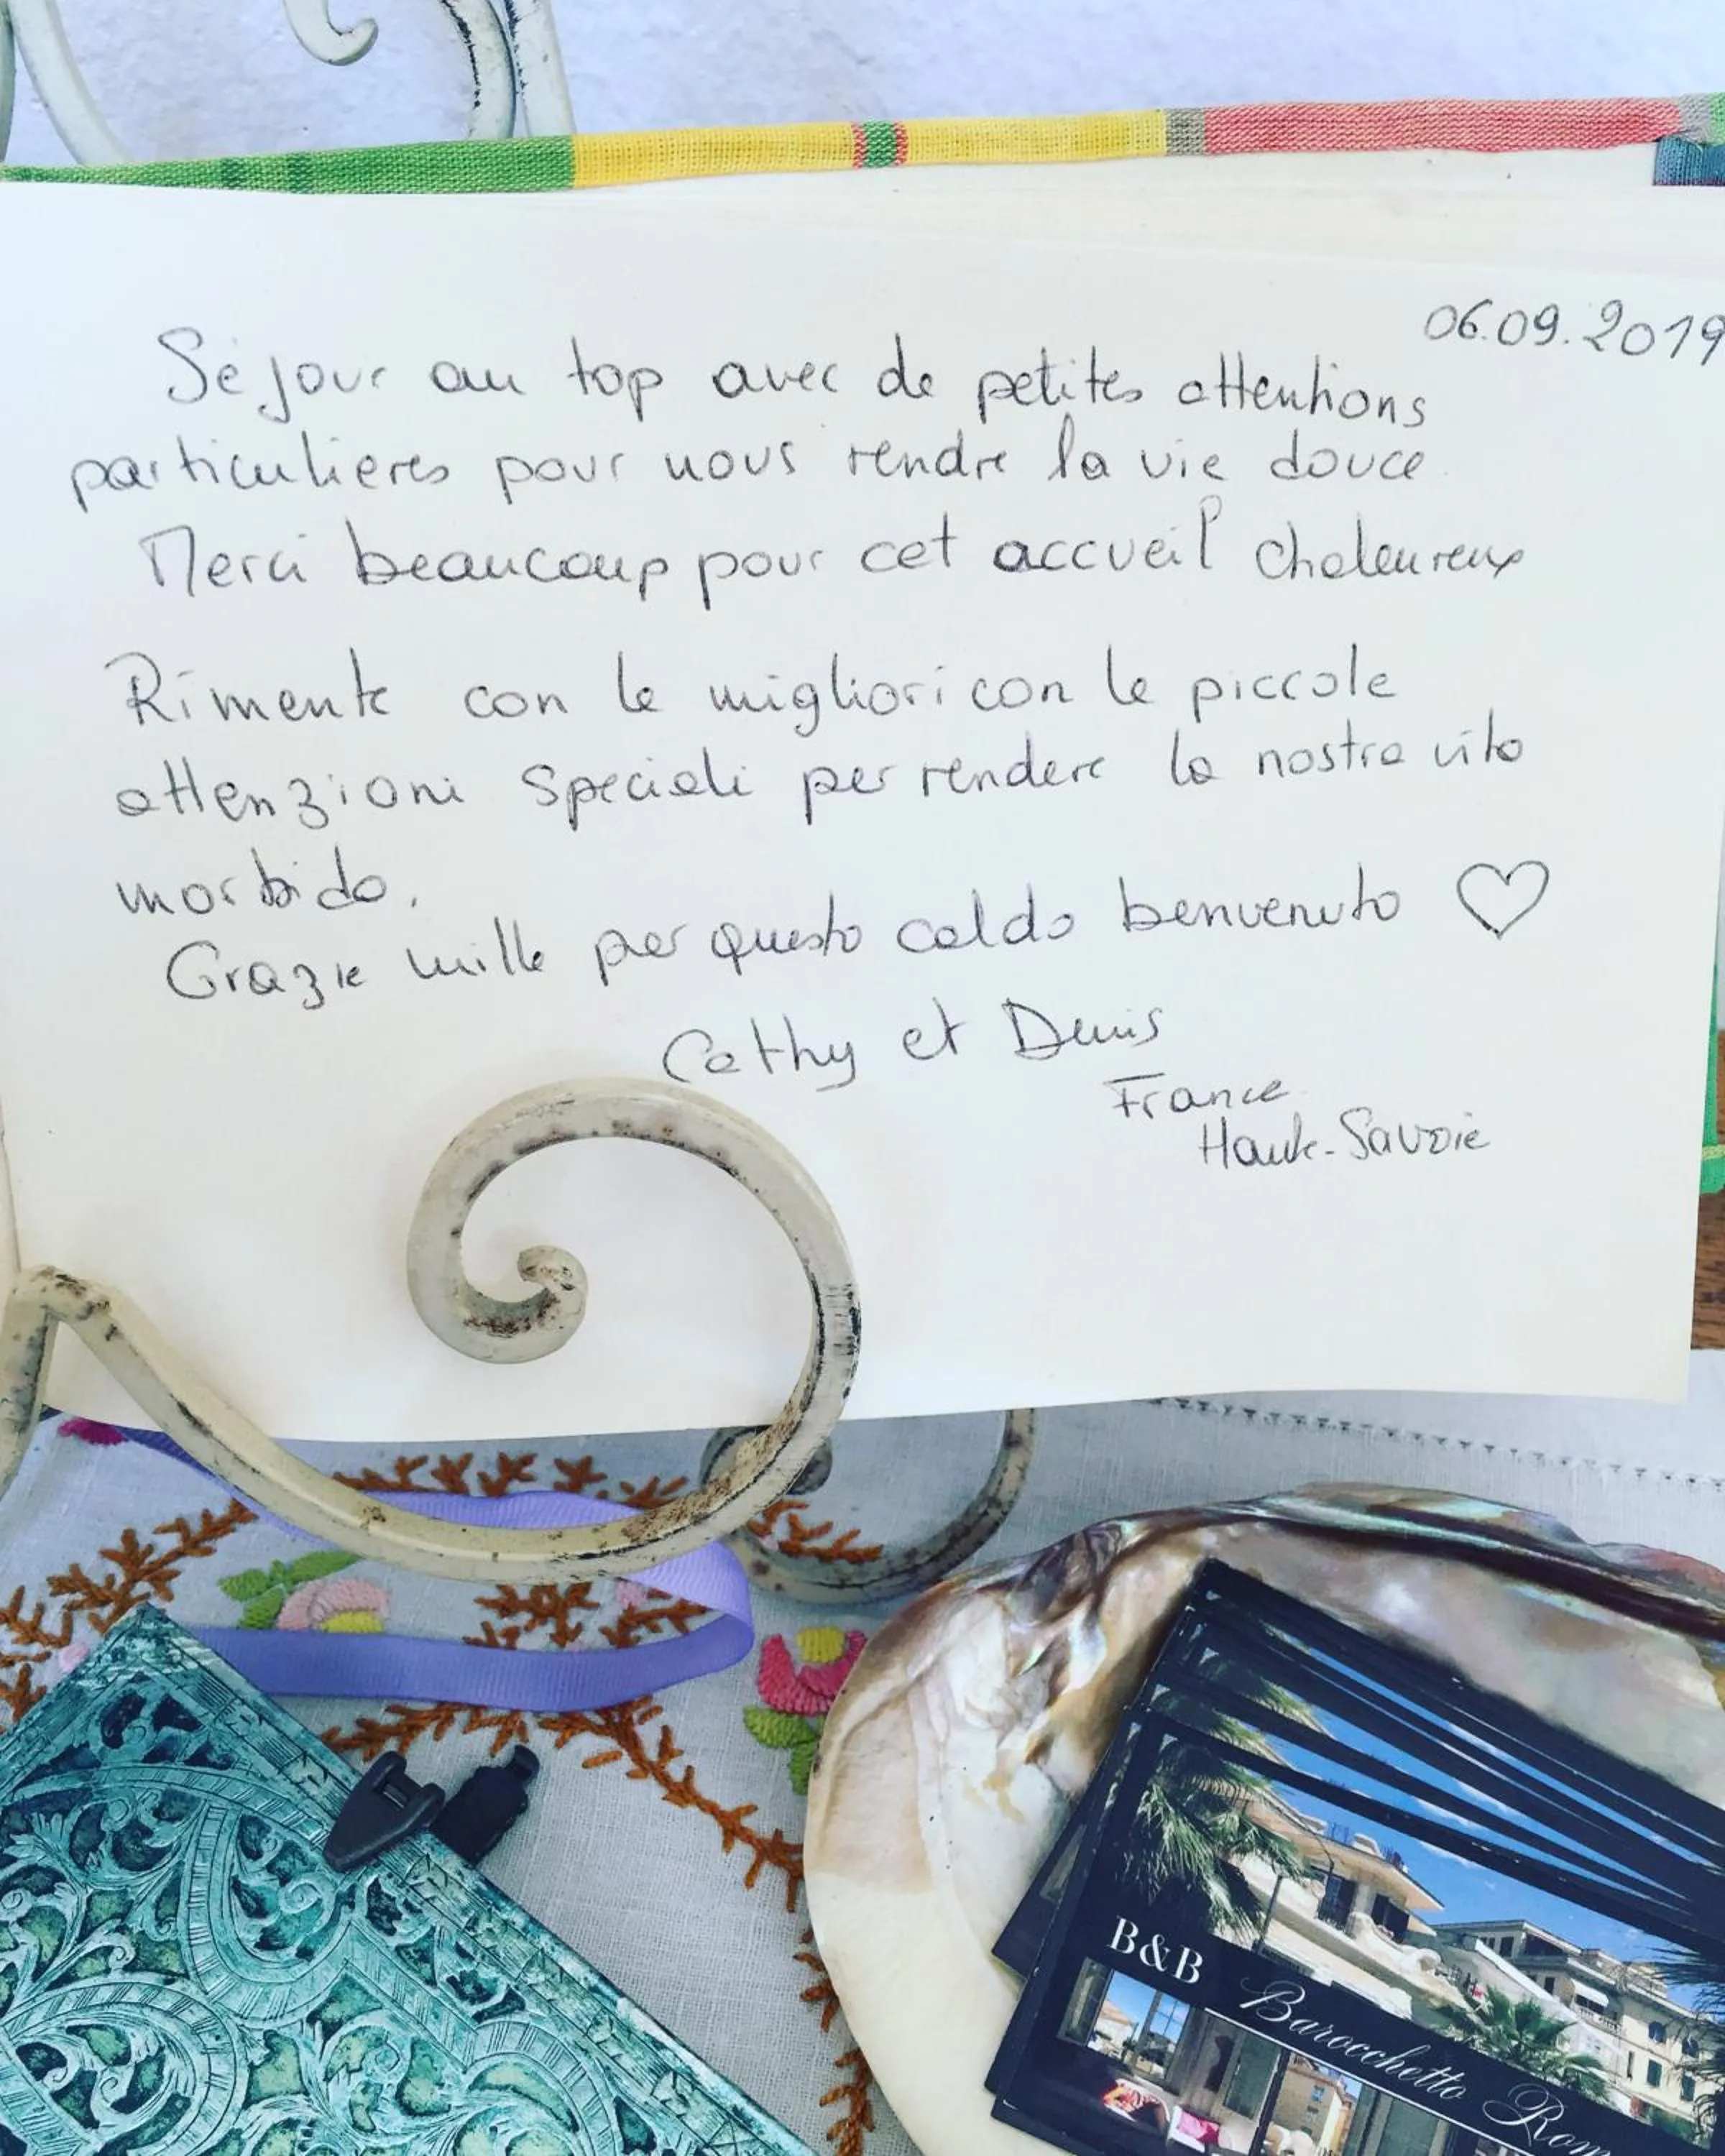 06.09.2019
Séjour au top avec de petites attentions
particulieres pour nous rendre la vie douce
Merci beaucoup pour cet accueil chaleureux
Rimente con le migliori con le piccole
attenzioni speciali per rendere la nostra vita
morbida.
Grazie mille per questo caldo benvenuto
Cathy et Denis
France
Haute-Savoie
B&B
Barocchetto Rom